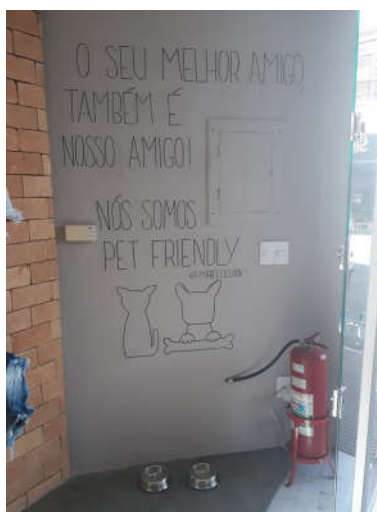 O SEU MELHOR AMIGO,
TAMBÉM É
NOSSO AMIGO!
NÓS SOMOS
PET FRIENDLY